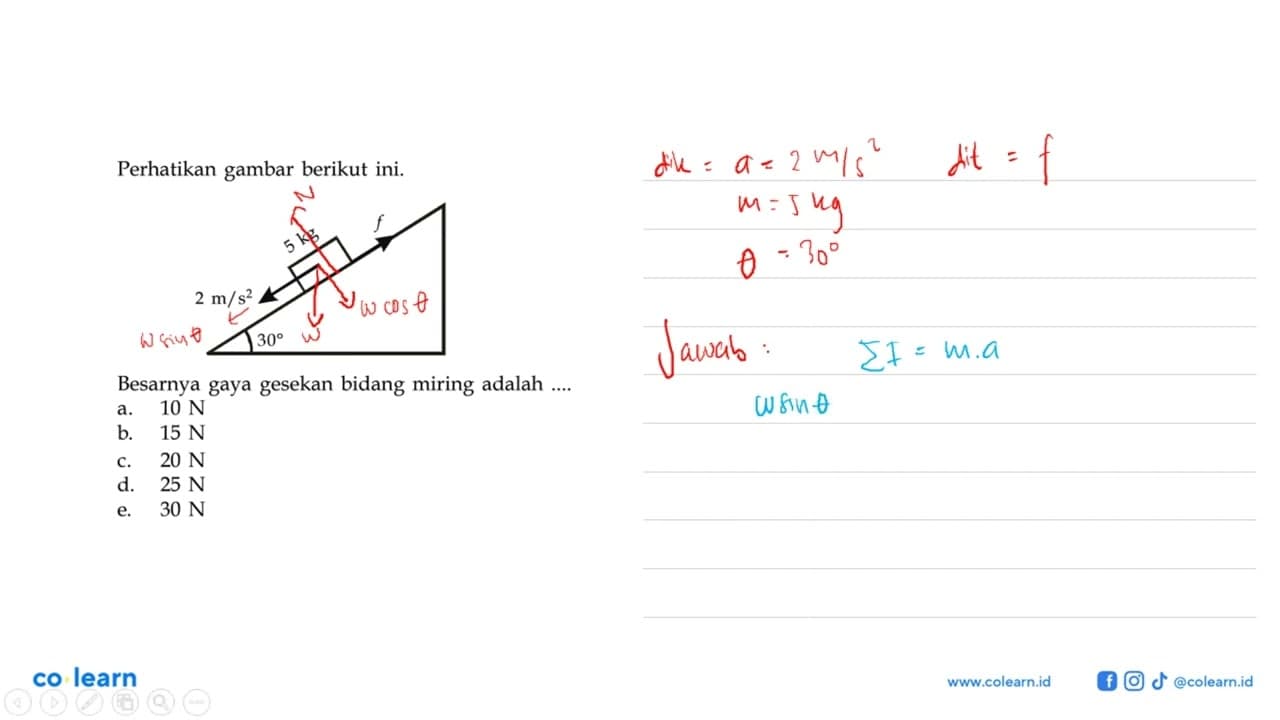 Perhatikan gambar berikut ini.
N
f
5 kg
2 m/s²
w cos θ
w sin θ
30°
w
Besarnya gaya gesekan bidang miring adalah ....
a. 10 N
b. 15 N
c. 20 N
d. 25 N
e. 30 N
dik = a = 2 m/s² dit = f
m = 5 kg
θ = 30°
Jawab : ΣF = m.a
w sin θ
co learn
www.colearn.id @colearn.id